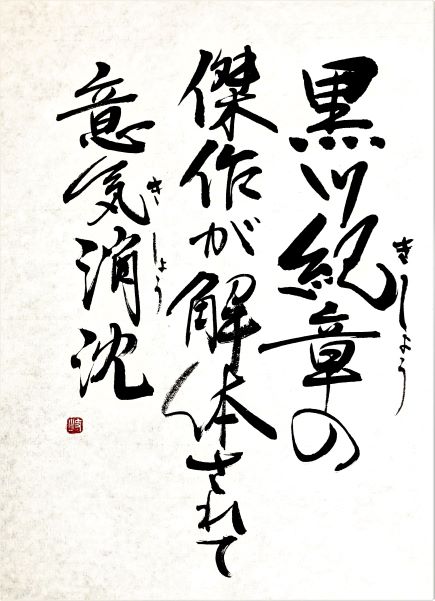 黒川紀章の
きしょう
傑作が解体されて
意気消沈
きしょう